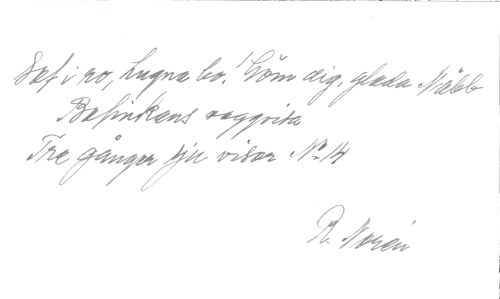 Sof i ro, lugna bo! Göm dig, glada Näbb
Bofinkens vaggvisa
Tre gånger sju visor No 14
R. Norén